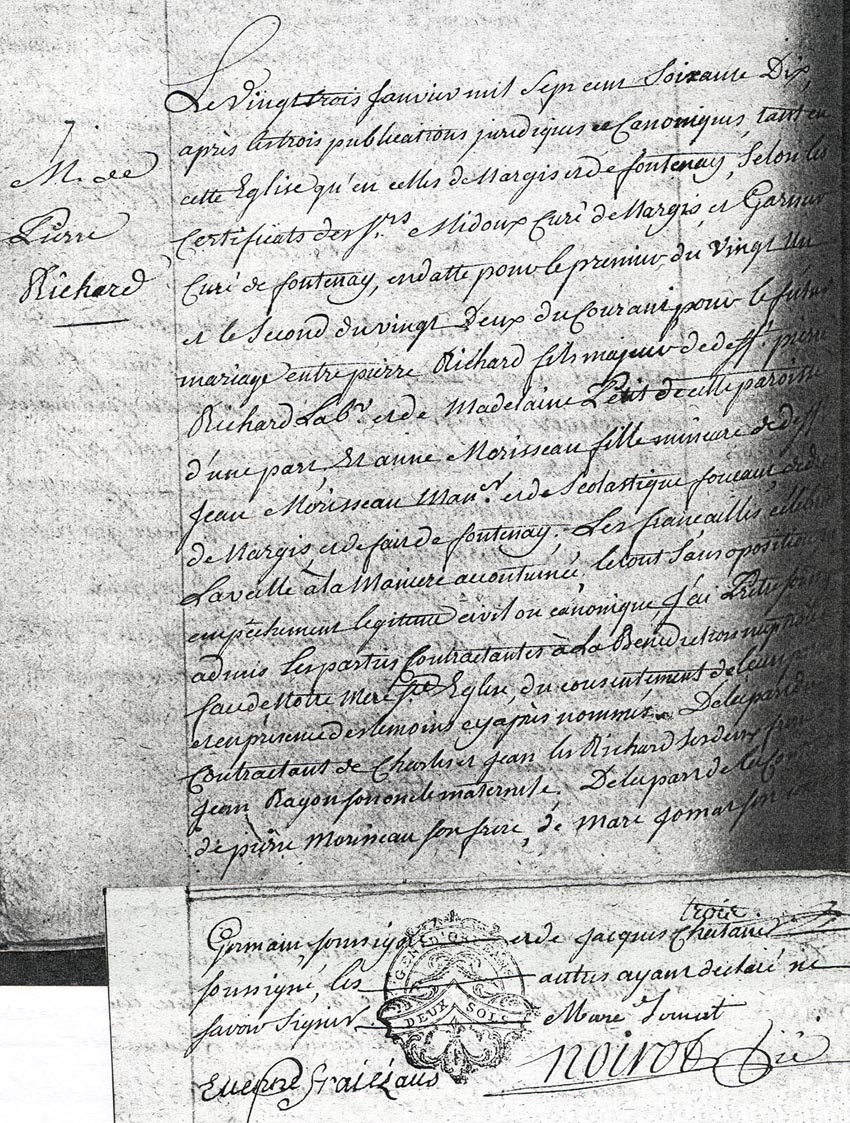 7.
M. de
Pierre
Richard
Le vingt trois Janvier mil sept cent Soixante Dix,
après les trois publications juridiques et Canoniques, tant en
cette Eglise qu'en celles de Margis et de fontenay, Selon les
Certificats des Srs Midoux Curé de Margis et Garnier
Curé de fontenay, en datte pour le premier du vingt un
et le Second du vingt Deux du Courant pour le futur
mariage entre pierre Richard fils majeur de deff.t pierre
Richard Labr. et de Madelaine Petit de cette paroisse
d'une part, Et anne Morisseau fille mineure de deff
Jean Morisseau Manr. et de Scolastique foucaut
de Margis, et de fait de fontenay, Les fiançailles
La veille à la Maniere accoutumée, le tout Sans oposition
empêchement legitime civil ou canonique, J'ai Prêtre
admis Les parties Contractantes à La Benediction
face de Notre Mere Ste Eglise, du consentement de leurs
et en présence des temoins cy après nommés. De la part du
Contractant de Charles et Jean les Richard ses deux
Jean Rayon son oncle maternele, De la part de la
de pierre Morineau son frere, de Marc Jomat son
Germain, soussigné et de Jacques troie
soussigné, les autres ayant declaré ne
savoir Signer. Marc
GEN. D'ORLEANS
DEUX SOLS
noirot